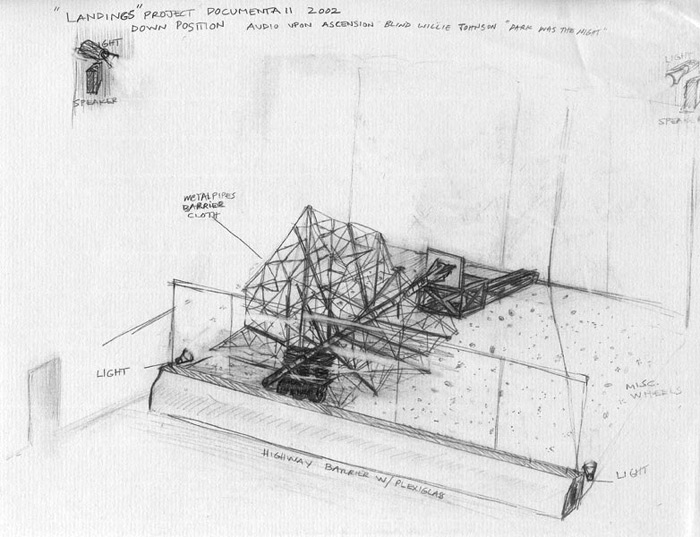 "LANDINGS" PROJECT DOCUMENTA 11 2002
DOWN POSITION AUDIO UPON ASCENSION BLIND WILLIE JOHNSON "DARK WAS THE NIGHT"
LIGHT
SPEAKER
LIGHT
SPEAKER
METAL PIPES
BARRIER
CLOTH
LIGHT
MISC.
WHEELS
HIGHWAY BARRIER W/ PLEXIGLAS
LIGHT